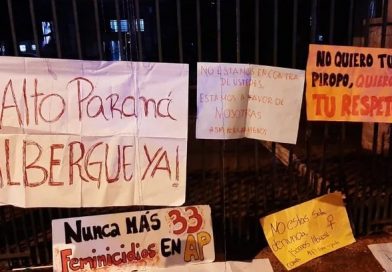 Alto Paraná
ALBERGUE YA!
NO ESTAMOS EN CONTRA
DE USTEDES,
ESTAMOS A FAVOR DE
NOSOTRAS
NO QUIERO TU
PIROPO, QUIERO
TU RESPETO
NUNCA MÁS 33
Feminicidios EN AP
No estás sola
denuncia